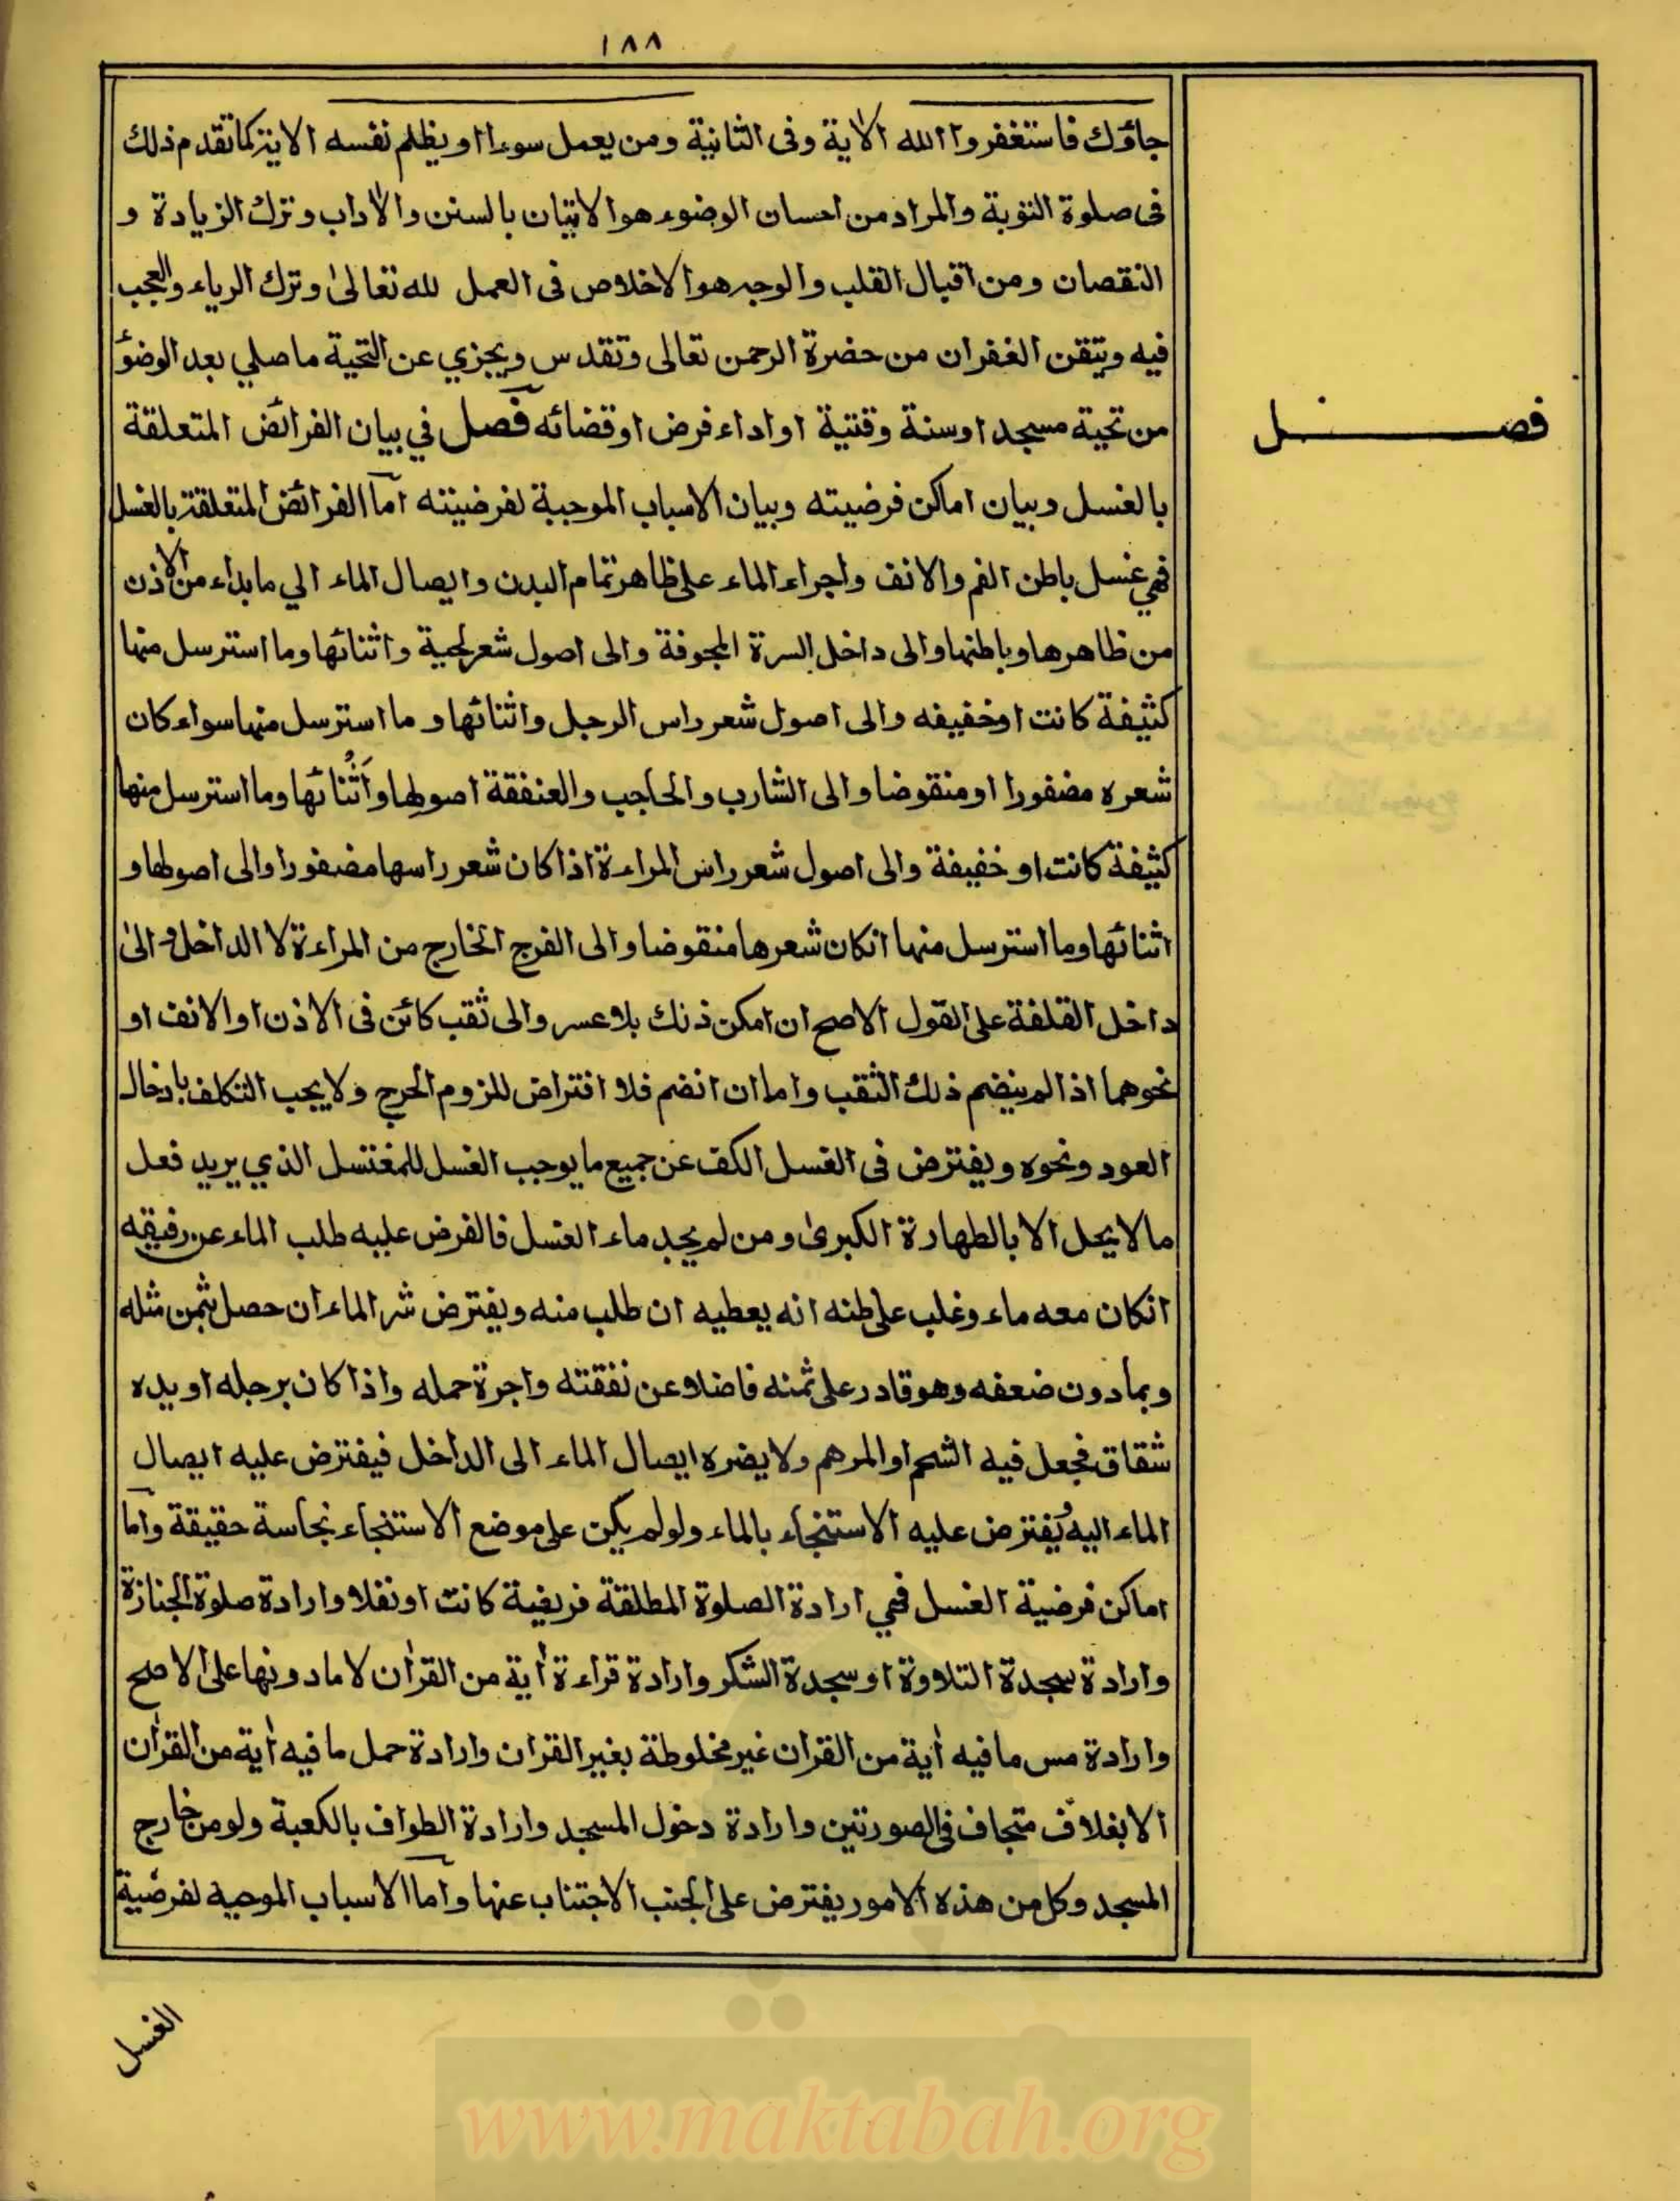 ١٨٨
جاؤك فاستغفروا الله الاية وفى الثانية ومن يعمل سوءا او يظلم نفسه الاية كما تقدم ذلك
فى صلوة التوبة والمراد من احسان الوضوء هو الاتيان بالسنن والاداب وترك الزيادة و
النقصان ومن اقبال القلب والوجه هو الاخلاص فى العمل لله تعالى وترك الرياء والعجب
فيه ويتقن الغفران من حضرة الرحمن تعالى وتقدس ويجزي عن التحية ما صلي بعد الوضؤ
من تحية مسجد او سنة وقتية او اداء فرض او قضائه فصل في بيان الفرائض المتعلقة
فصل
بالغسل وبيان اماكن فرضيته وبيان الاسباب الموجبة لفرضيته اما الفرائض المتعلقة بالغسل
فهي غسل باطن الفم والانف واجراء الماء على ظاهر تمام البدن وايصال الماء الي ما بداء من الاذن
من ظاهرها وباطنها والى داخل السرة المجوفة والى اصول شعر لحية واثنائها وما استرسل منها
كثيفة كانت او خفيفه والى اصول شعر راس الرجل واثنائها و ما استرسل منها سواء كان
شعره مضفورا او منقوضا والى الشارب والحاجب والعنفقة اصولها واثنائها وما استرسل منها
كثيفة كانت او خفيفة والى اصول شعر راس المراءة اذا كان شعر راسها مضفورا والى اصولها و
اثنائها وما استرسل منها انكان شعرها منقوضا والى الفرج الخارج من المراءة لا الداخل والى
داخل القلفة على القول الاصح ان امكن ذلك بلا عسر والى ثقب كائن فى الاذن او الانف او
نحوهما اذا لم ينضم ذلك الثقب واما ان انضم فلا افتراض للزوم الحرج ولا يجب التكلف بادخال
العود ونحوه ويفترض فى الغسل الكف عن جميع ما يوجب الغسل للمغتسل الذي يريد فعل
ما لا يحل الا بالطهارة الكبرى ومن لم يجد ماء الغسل فالفرض عليه طلب الماء عن رفيقه
انكان معه ماء وغلب على ظنه انه يعطيه ان طلب منه ويفترض شر الماء ان حصل بثمن مثله
وبما دون ضعفه وهو قادر على ثمنه فاضلا عن نفقته واجرة حمله واذا كان برجله او يده
شقاق فجعل فيه الشحم او المرهم ولا يضره ايصال الماء الى الداخل فيفترض عليه ايصال
الماء اليه يُفترض عليه الاستنجاء بالماء ولو لم يكن على موضع الاستنجاء نجاسة حقيقة واما
اماكن فرضية الغسل فهي ارادة الصلوة المطلقة فريضة كانت او نفلا وارادة صلوة الجنازة
وارادة سجدة التلاوة او سجدة الشكر وارادة قراءة أية من القرأن لا ما دونها على الاصح
وارادة مس ما فيه أية من القران غير مخلوطة بغير القران وارادة حمل ما فيه أية من القرأن
الا بغلاف متجاف فى الصورتين وارادة دخول المسجد وارادة الطواف بالكعبة ولو من خارج
المسجد وكل من هذه الامور يفترض على الجنب الاجتناب عنها واما الاسباب الموجبة لفرضية
الغسل
www.maktabah.org